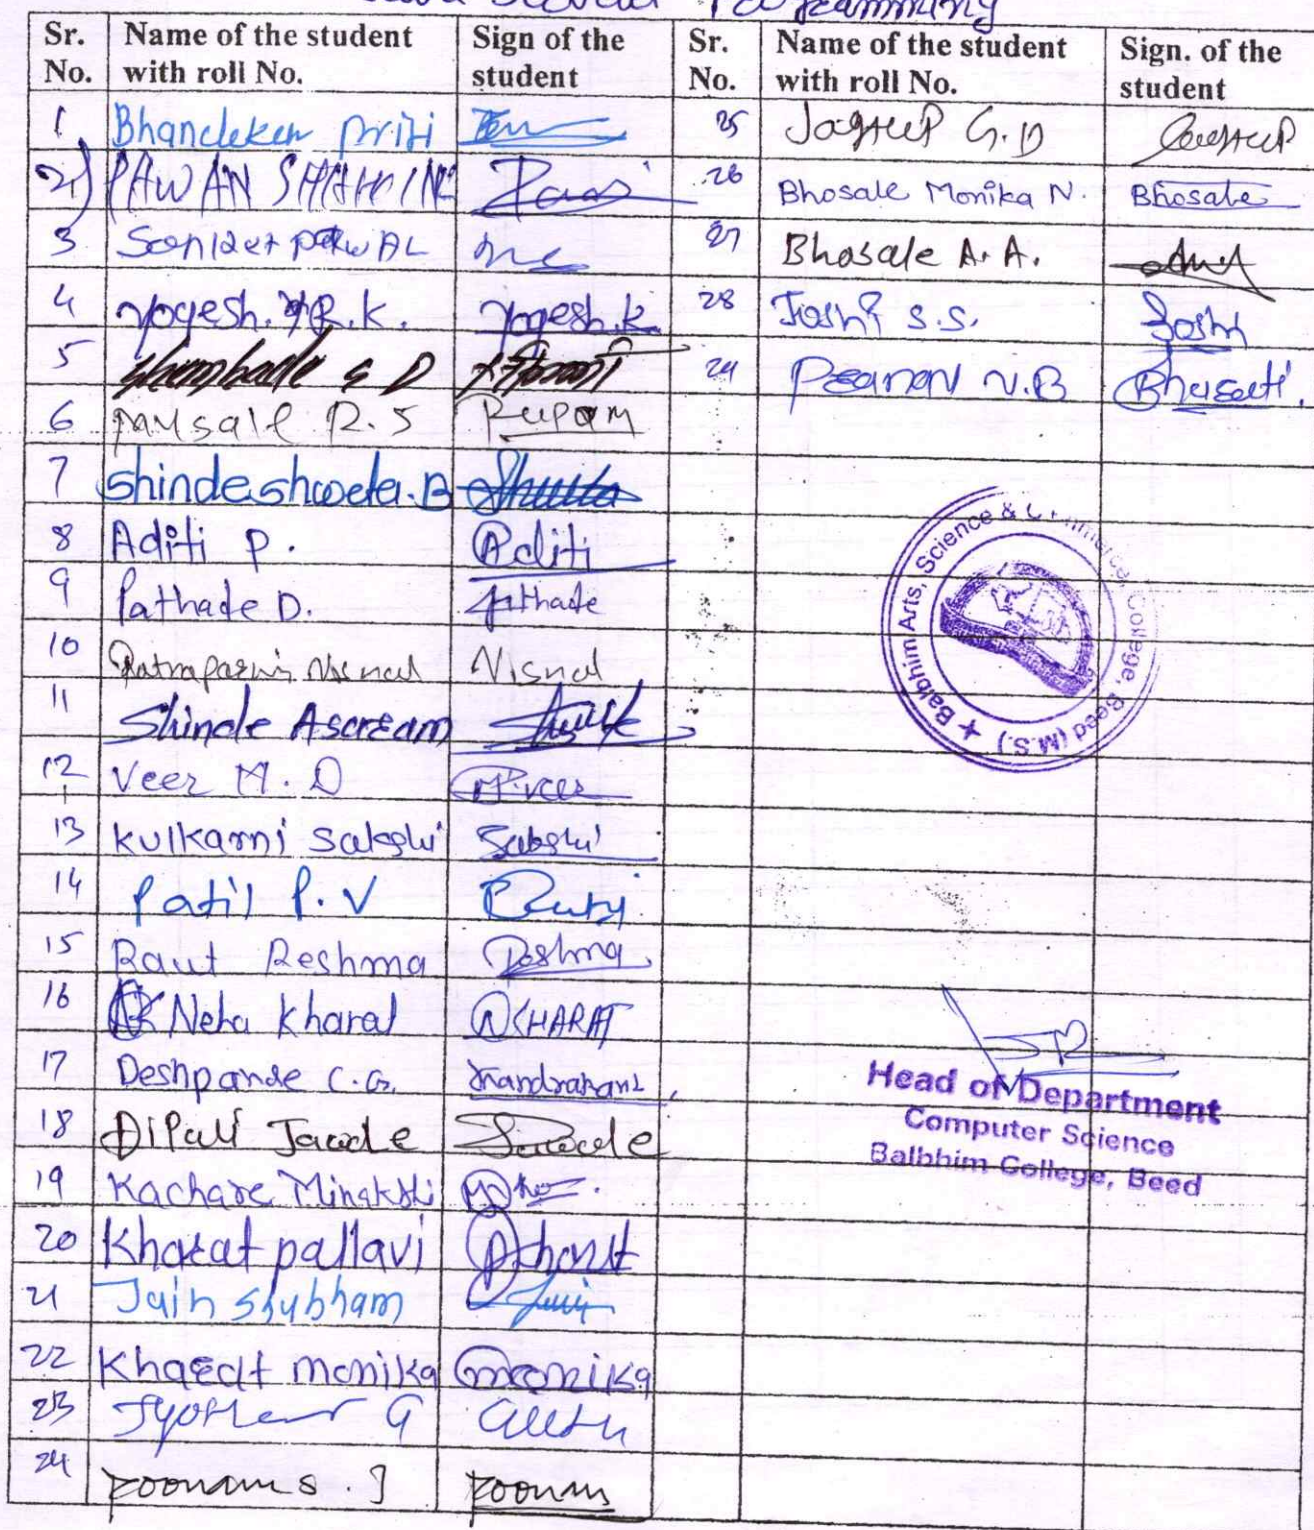 Programming
Sr. No. Name of the student with roll No. Sign of the student Sr. No. Name of the student with roll No. Sign. of the student
1 Bhandeker Priti 25 Jagtap G.D
2) PAWAN 26 Bhosale Monika N. Bhosale
3 27 Bhosale A. A.
4 Yogesh. R. K. Yogesh.k. 28 Joshi S.S. Joshi
5 S D 29 N.B
6 Musale R.S Rupam
7 Shinde shweta.B Shweta
8 Aditi P. Aditi
9 Pathade D. Pathade
10 Vishal
11 Shinde
12 Veer M. D M.veer
13 Kulkarni Sakshi Sakshi
14 Patil P. V
15 Raut Reshma Reshma
16 Neha Kharat KHARAT
17 Deshpande C.G. Chandrakant
18 Dipali Jawde
19 Kachare Minakshi
20 Kharat pallavi
21 Jain Shubham Jain
22 Kharat monika monika
23 G
24 Poonam S. J Poonam
Balbhim Arts, Science & Commerce, College, Beed (M.S.)
Head of Department
Computer Science
Balbhim College, Beed